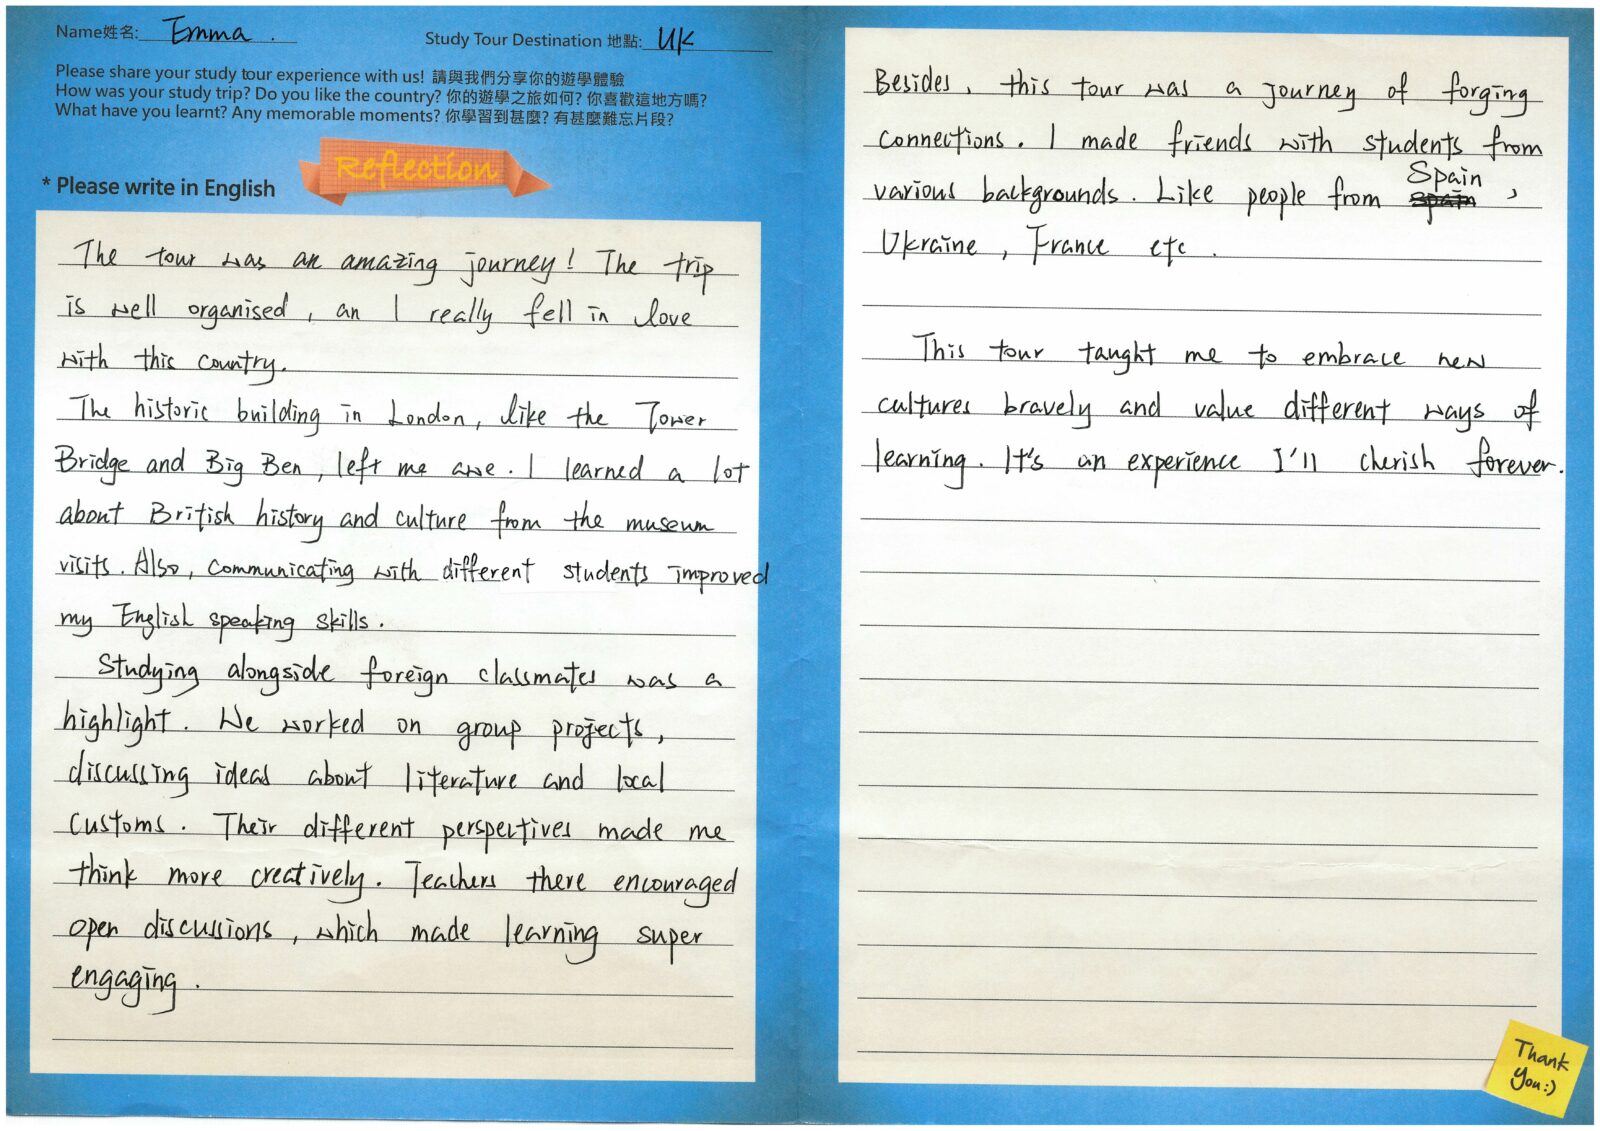 Name姓名: Emma.
Study Tour Destination 地點: UK
Please share your study tour experience with us! 請與我們分享你的遊學體驗
How was your study trip? Do you like the country? 你的遊學之旅如何? 你喜歡這地方嗎?
What have you learnt? Any memorable moments? 你學習到甚麼? 有甚麼難忘片段?
Reflection
* Please write in English
The tour was an amazing journey! The trip
is well organised, an I really fell in love
with this country.
The historic building in London, like the Tower
Bridge and Big Ben, left me awe. I learned a lot
about British history and culture from the museum
visits. Also, communicating with different students improved
my English speaking skills.
Studying alongside foreign classmates was a
highlight. We worked on group projects,
discussing ideas about literature and local
customs. Their different perspectives made me
think more creatively. Teachers there encouraged
open discussions, which made learning super
engaging.
Besides, this tour was a journey of forging
connections. I made friends with students from
various backgrounds. Like people from Spain,
Ukraine, France etc.
This tour taught me to embrace new
cultures bravely and value different ways of
learning. It's an experience I'll cherish forever.
Thank
You:)